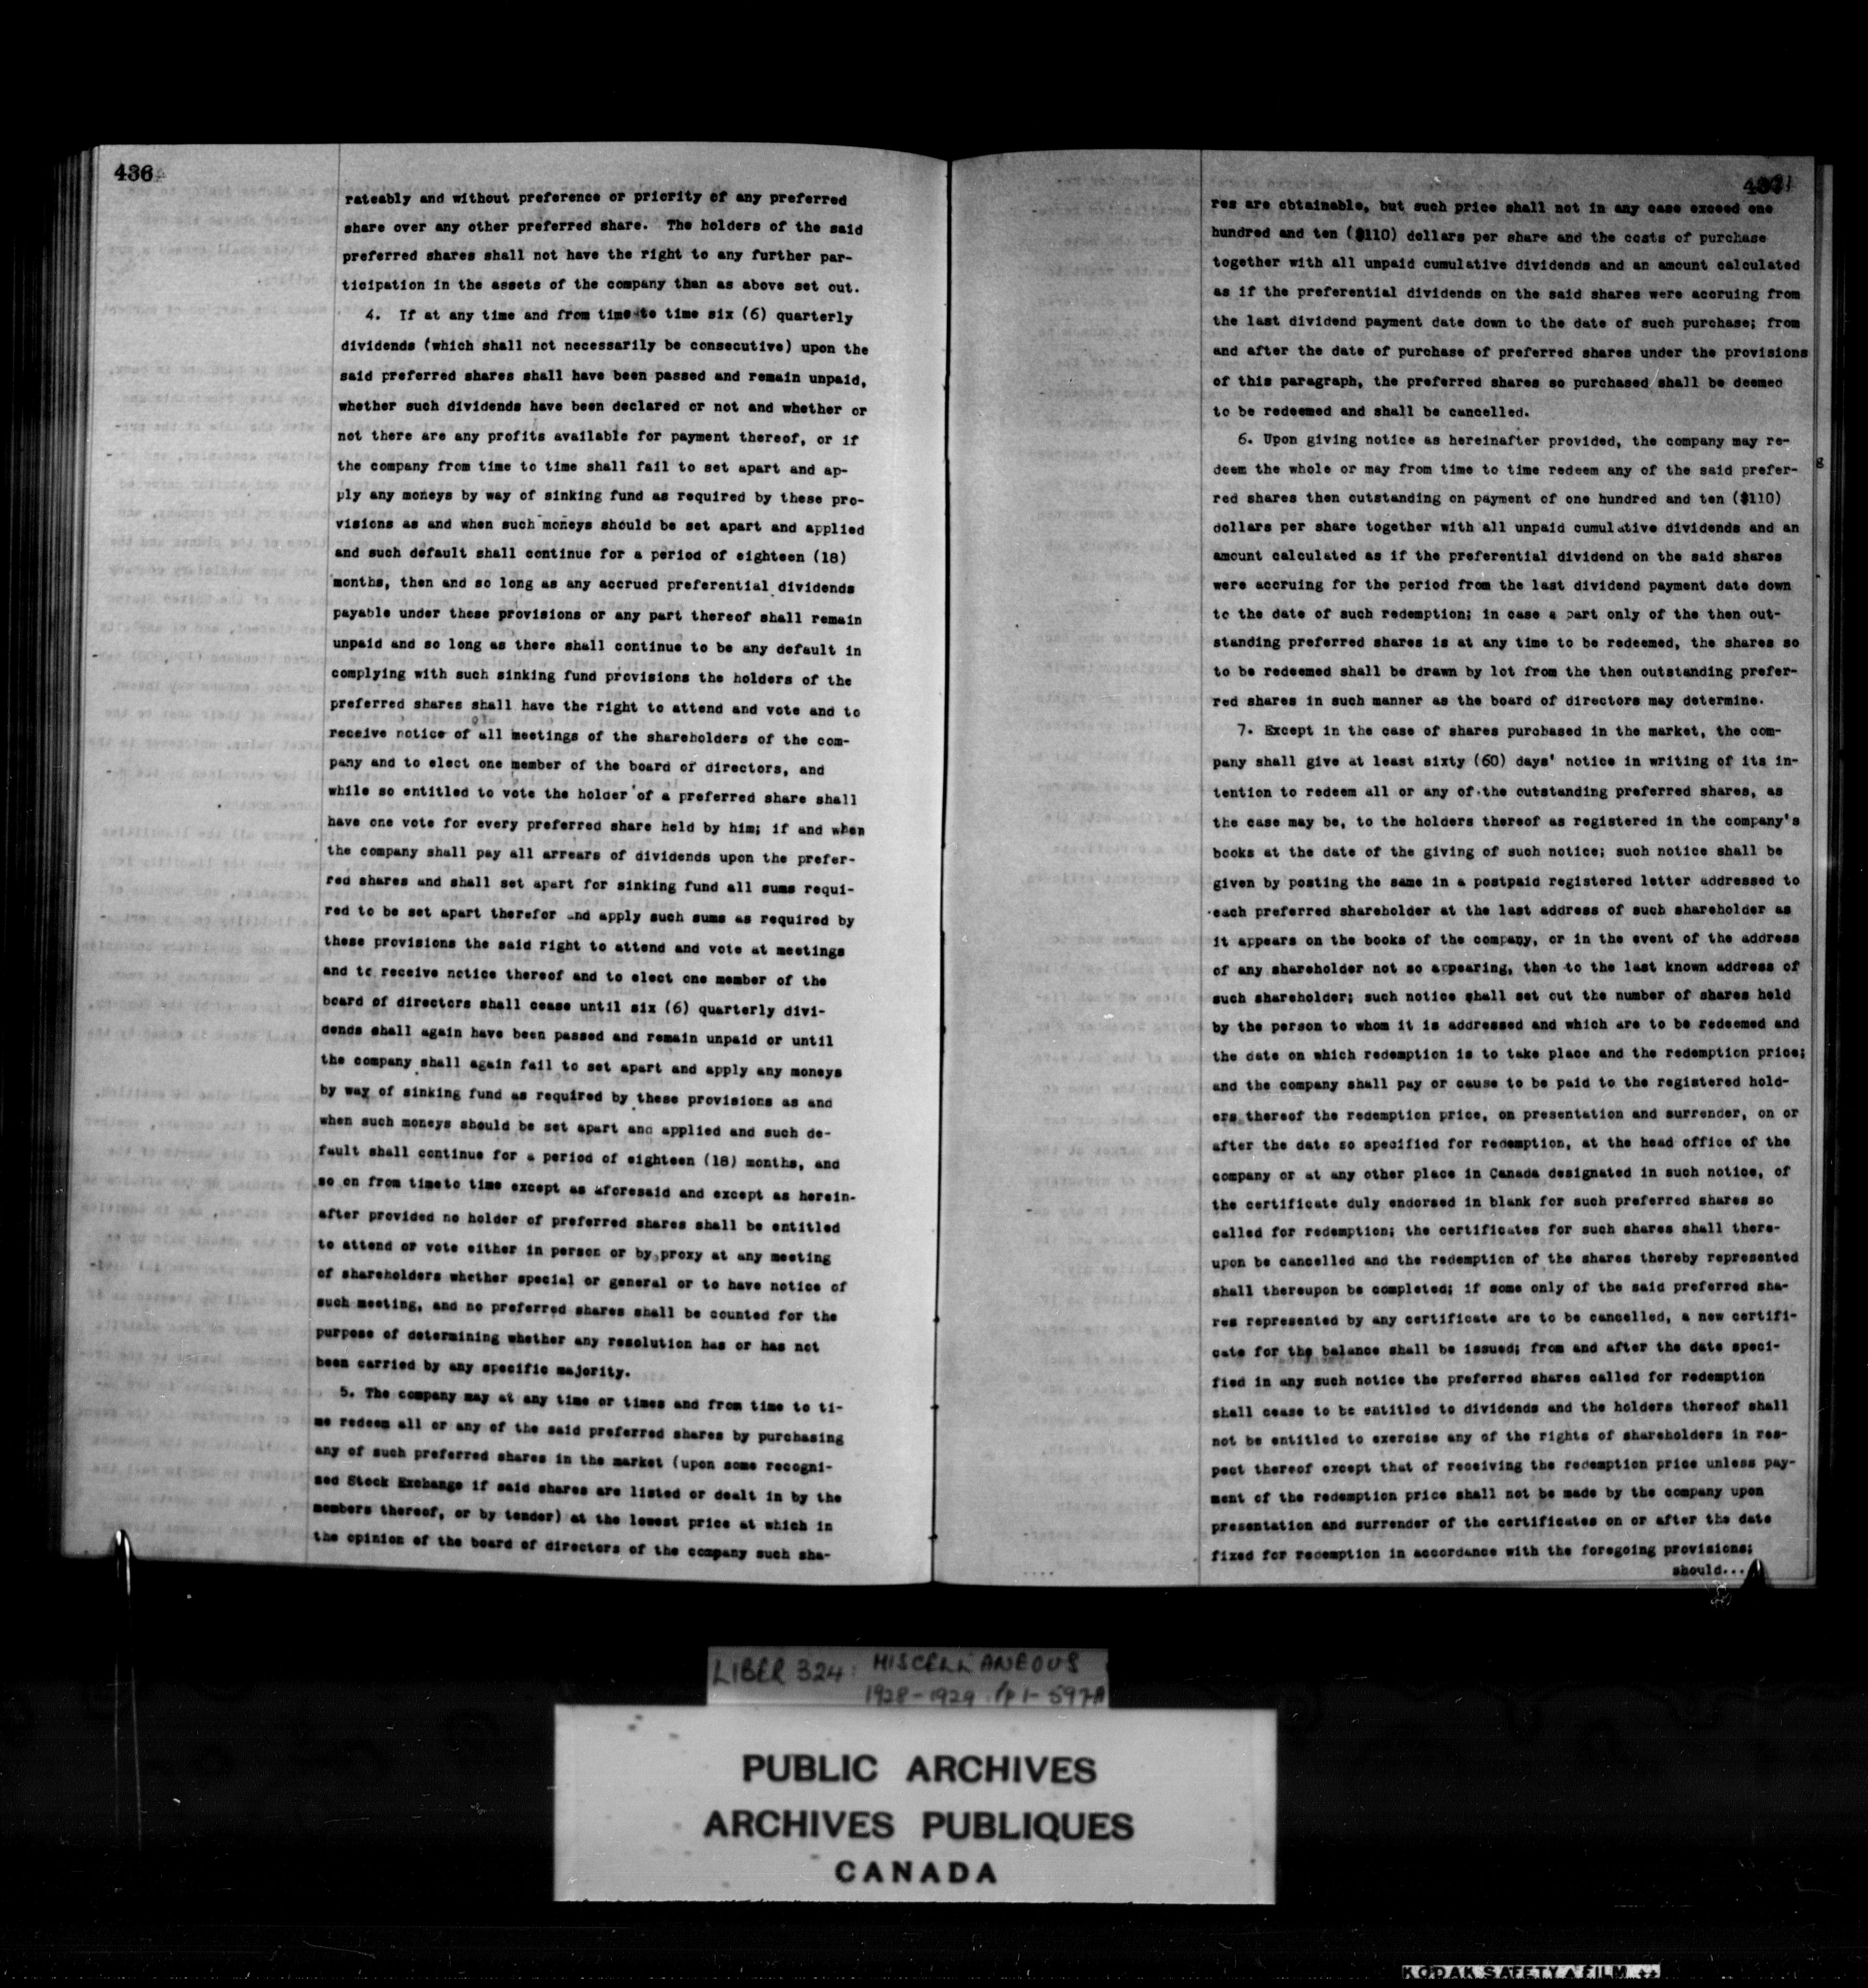 436
rateably and without preference or priority of any preferred
share over any other preferred share. The holders of the said
preferred shares shall not have the right to any further par-
ticipation in the assets of the company than as above set out.
4. If at any time and from time to time six (6) quarterly
dividends (which shall not necessarily be consecutive) upon the
said preferred shares shall have been passed and remain unpaid,
whether such dividends have been declared or not and whether or
not there are any profits available for payment thereof, or if
the company from time to time shall fail to set apart and ap-
ply any moneys by way of sinking fund as required by these pro-
visions as and when such moneys should be set apart and applied
and such default shall continue for a period of eighteen (18)
months, then and so long as any accrued preferential dividends
payable under these provisions or any part thereof shall remain
unpaid and so long as there shall continue to be any default in
complying with such sinking fund provisions the holders of the
preferred shares shall have the right to attend and vote and to
receive notice of all meetings of the shareholders of the com-
pany and to elect one member of the board of directors, and
while so entitled to vote the holder of a preferred share shall
have one vote for every preferred share held by him; if and when
the company shall pay all arrears of dividends upon the prefer-
red shares and shall set apart for sinking fund all sums requi-
red to be set apart therefor and apply such sums as required by
these provisions the said right to attend and vote at meetings
and to receive notice thereof and to elect one member of the
board of directors shall cease until six (6) quarterly divi-
dends shall again have been passed and remain unpaid or until
the company shall again fail to set apart and apply any moneys
by way of sinking fund as required by these provisions as and
when such moneys should be set apart and applied and such de-
fault shall continue for a period of eighteen (18) months, and
so on from timeto time except as aforesaid and except as herein-
after provided no holder of preferred shares shall be entitled
to attend or vote either in person or by proxy at any meeting
of shareholders whether special or general or to have notice of
such meeting, and no preferred shares shall be counted for the
purpose of determining whether any resolution has or has not
been carried by any specific majority.
5. The company may at any time or times and from time to ti-
me redeem all or any of the said preferred shares by purchasing
any of such preferred shares in the market (upon some recogni-
sed Stock Exchange if said shares are listed or dealt in by the
members thereof, or by tender) at the lowest price at which in
the opinion of the board of directors of the company such sha-
res are obtainable, but such price shall not in any case exceed one
hundred and ten ($110) dollars per share and the costs of purchase
together with all unpaid cumulative dividends and an amount calculated
as if the preferential dividends on the said shares were accruing from
the last dividend payment date down to the date of such purchase; from
and after the date of purchase of preferred shares under the provisions
of this paragraph, the preferred shares so purchased shall be deemed
to be redeemed and shall be cancelled.
6. Upon giving notice as hereinafter provided, the company may re-
deem the whole or may from time to time redeem any of the said prefer-
red shares then outstanding on payment of one hundred and ten ($110)
dollars per share together with all unpaid cumulative dividends and an
amount calculated as if the preferential dividend on the said shares
were accruing for the period from the last dividend payment date down
to the date of such redemption; in case a part only of the then out-
standing preferred shares is at any time to be redeemed, the shares so
to be redeemed shall be drawn by lot from the then outstanding prefer-
red shares in such manner as the board of directors may determine.
7. Except in the case of shares purchased in the market, the com-
pany shall give at least sixty (60) days' notice in writing of its in-
tention to redeem all or any of the outstanding preferred shares, as
the case may be, to the holders thereof as registered in the company's
books at the date of the giving of such notice; such notice shall be
given by posting the same in a postpaid registered letter addressed to
each preferred shareholder at the last address of such shareholder as
it appears on the books of the company, or in the event of the address
of any shareholder not so appearing, then to the last known address of
such shareholder; such notice shall set out the number of shares held
by the person to whom it is addressed and which are to be redeemed and
the date on which redemption is to take place and the redemption price;
and the company shall pay or cause to be paid to the registered hold-
ers thereof the redemption price, on presentation and surrender, on or
after the date so specified for redemption, at the head office of the
company or at any other place in Canada designated in such notice, of
the certificate duly endorsed in blank for such preferred shares so
called for redemption; the certificates for such shares shall there-
upon be cancelled and the redemption of the shares thereby represented
shall thereupon be completed; if some only of the said preferred sha-
res represented by any certificate are to be cancelled, a new certifi-
cate for the balance shall be issued; from and after the date speci-
fied in any such notice the preferred shares called for redemption
shall cease to be entitled to dividends and the holders thereof shall
not be entitled to exercise any of the rights of shareholders in res-
pect thereof except that of receiving the redemption price unless pay-
ment of the redemption price shall not be made by the company upon
presentation and surrender of the certificates on or after the date
fixed for redemption in accordance with the foregoing provisions;
should...
LIBER 324: MISCELLANEOUS
1928-1929 pp 1-597A
PUBLIC ARCHIVES
ARCHIVES PUBLIQUES
CANADA
KODAK SAFETY FILM